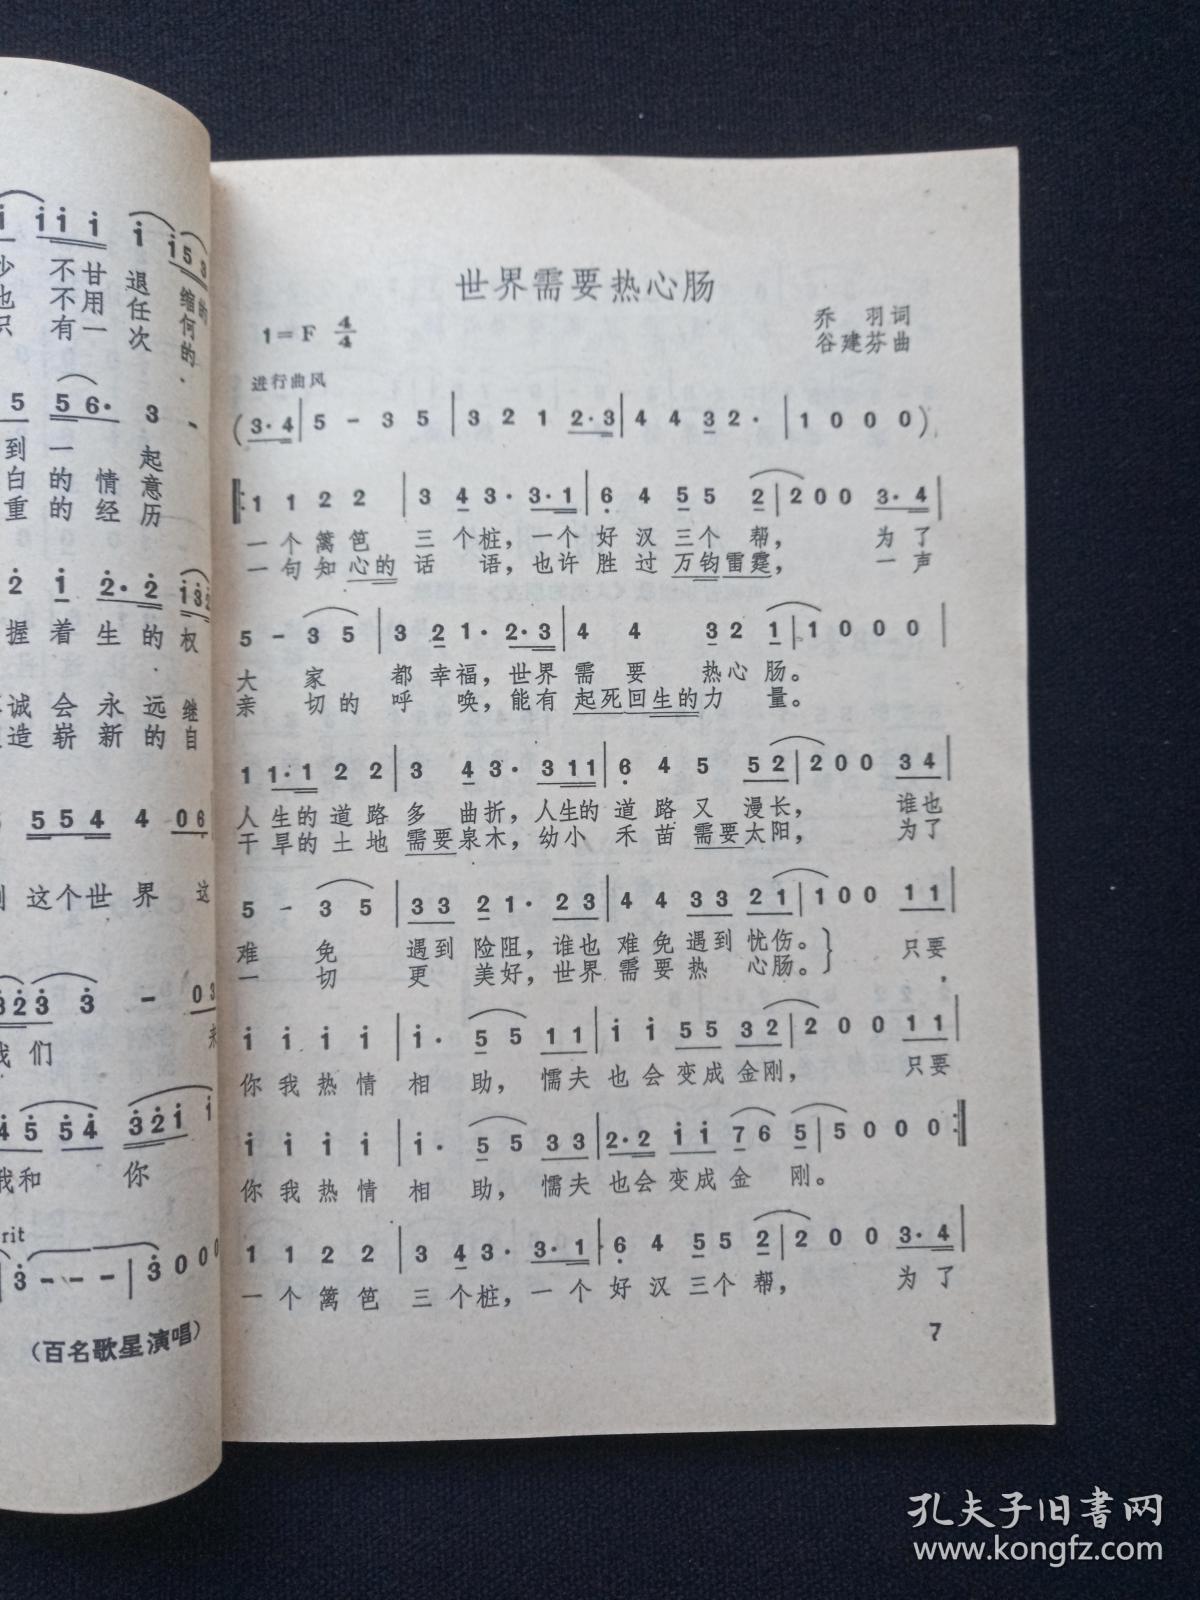 不甘退缩的
不用任何
有一次的
5 5 6· 3 -
到一起
白的情意
重的经历
握着生的权
诚会永远继
造崭新的自
5 5 4 4 0 6
这个世界 这
我们
我和 你
rit
(百名歌星演唱)
世界需要热心肠
1=F 4/4
乔 羽词
谷建芬曲
进行曲风
(3·4|5 - 3 5|3 2 1 2·3|4 4 3 2·|1 0 0 0)
1 1 2 2|3 4 3· 3·1|6 4 5 5 2|2 0 0 3·4|
一个篱笆 三个桩,一个好汉三个帮, 为了
一句知心的话 语,也许胜过万钧雷霆, 一声
5 - 3 5|3 2 1· 2·3|4 4 3 2 1|1 0 0 0|
大 家 都幸福,世界需 要 热心肠。
亲 切的呼 唤,能有起死回生的力 量。
1 1·1 2 2|3 4 3· 3 1 1|6 4 5 5 2|2 0 0 3 4|
人生的道路多 曲折,人生的道路又 漫长, 谁也
干旱的土地需要泉木,幼小 禾苗需要太阳, 为了
5 - 3 5|3 3 2 1· 2 3|4 4 3 3 2 1|1 0 0 1 1|
难 免 遇到险阻,谁也难免遇到忧伤。} 只要
一 切 更 美好,世界需要热 心肠。} ,
i i i i|i· 5 5 1 1|i i 5 5 3 2|2 0 0 1 1|
你我热情相 助, 懦夫也会变成金刚, 只要
i i i i|i· 5 5 3 3|2·2 i i 7 6 5|5 0 0 0:|
你我热情相 助, 懦夫也会变成金 刚。
1 1 2 2|3 4 3· 3·1|6 4 5 5 2|2 0 0 3·4|
一个篱笆 三个桩,一个好汉三个帮, 为了
7
孔夫子旧书网
www.kongfz.com